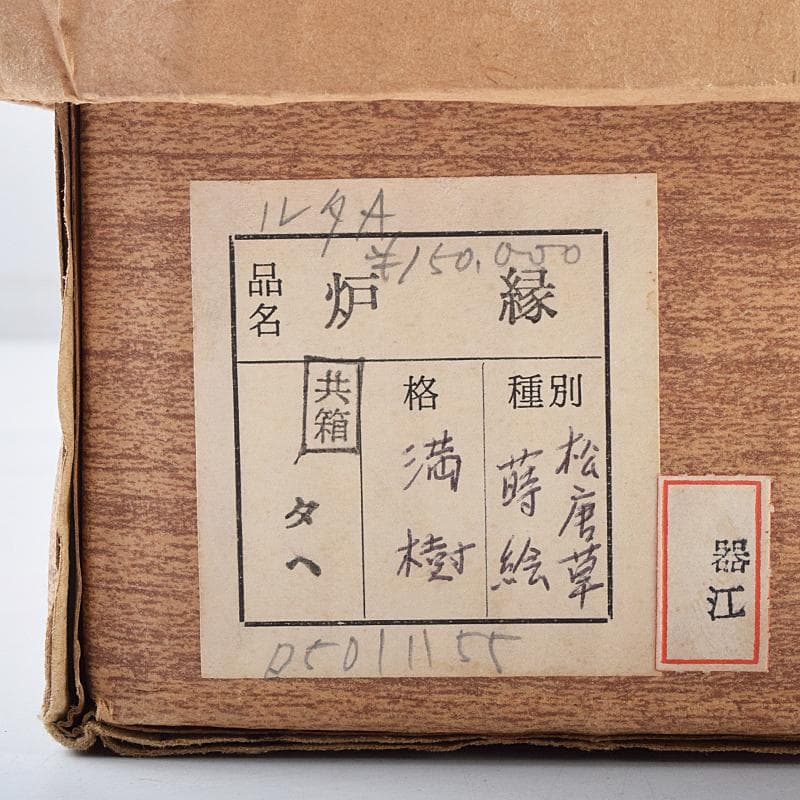 ルタA
¥150,000
品名
炉縁
種別
松唐草
蒔絵
格
満樹
共箱
タヘ
D5011155
器